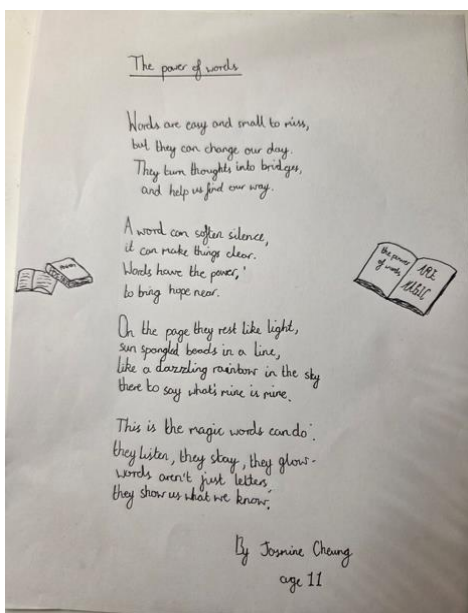 The power of words
Words are easy and small to miss,
but they can change our day.
They turn thoughts into bridges,
and help us find our way.
A word can soften silence,
it can make things clear.
Words have the power,
to bring hope near.
On the page they rest like light,
sun spangled beads in a line,
like a dazzling rainbow in the sky
there to say what's mine is mine.
This is the magic words can do.
they listen, they stay, they glow-
words aren't just letters,
they show us what we know.
the power
of words
ARE
MAGIC
By Jasmine Cheung
age 11